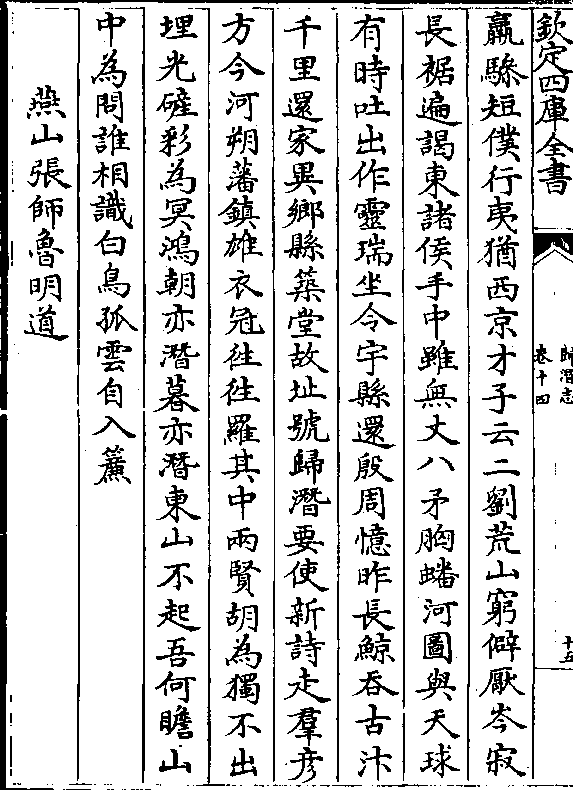 欽定四庫全書
歸潛志
卷十四
十五
羸驂短僕行夷猶西京才子云二劉荒山窮僻厭岑寂
長裾遍謁東諸侯手中雖無丈八矛胸蟠河圖與天球
有時吐出作靈瑞坐令宇縣還殷周憶昨長鯨吞古汴
千里還家異鄉縣築堂故址號歸潛要使新詩走羣彦
方今河朔藩鎮雄衣冠往往羅其中兩賢胡為獨不出
埋光鏟彩為冥鴻朝亦潛暮亦潛東山不起吾何瞻山
中為問誰相識白鳥孤雲自入簾
燕山張師魯明道